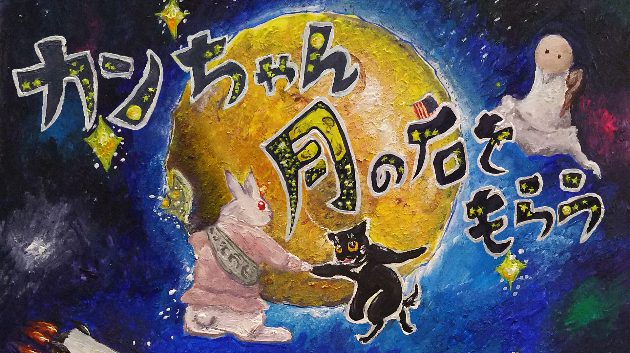 カンちゃん
月の石を
もらう